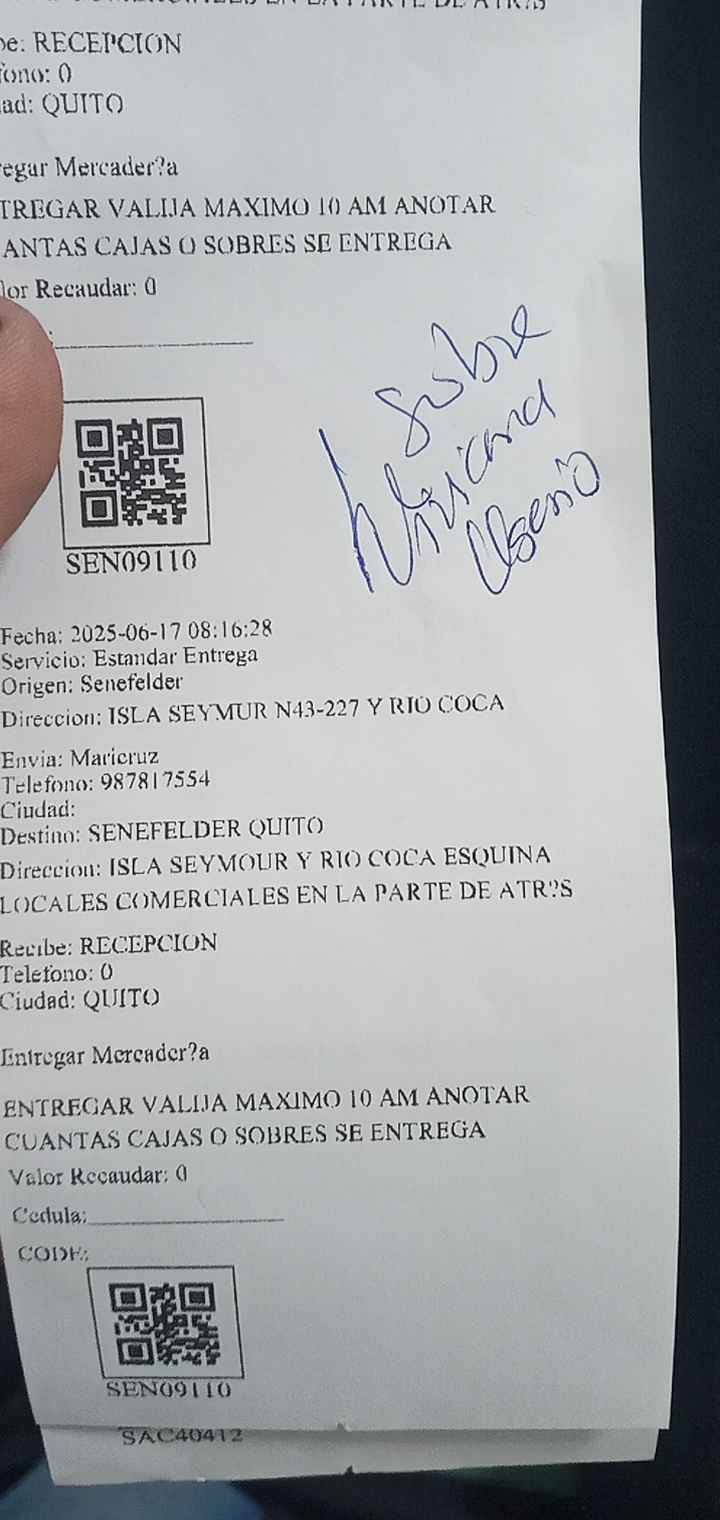 RECEPCION
0
QUITO
Mercader?a
VALIJA MAXIMO 10 AM ANOTAR
CAJAS O SOBRES SE ENTREGA
Recaudar: 0
Sobre
Viviana
SEN09110
Fecha: 2025-06-17 08:16:28
Servicio: Estandar Entrega
Origen: Senefelder
Direccion: ISLA SEYMUR N43-227 Y RIO COCA
Envia: Maricruz
Telefono: 987817554
Ciudad:
Destino: SENEFELDER QUITO
Direccion: ISLA SEYMOUR Y RIO COCA ESQUINA
LOCALES COMERCIALES EN LA PARTE DE ATR?S
Recibe: RECEPCION
Telefono: 0
Ciudad: QUITO
Entregar Mercader?a
ENTREGAR VALIJA MAXIMO 10 AM ANOTAR
CUANTAS CAJAS O SOBRES SE ENTREGA
Valor Recaudar: 0
Cedula:
CODE:
SEN09110
SAC40412